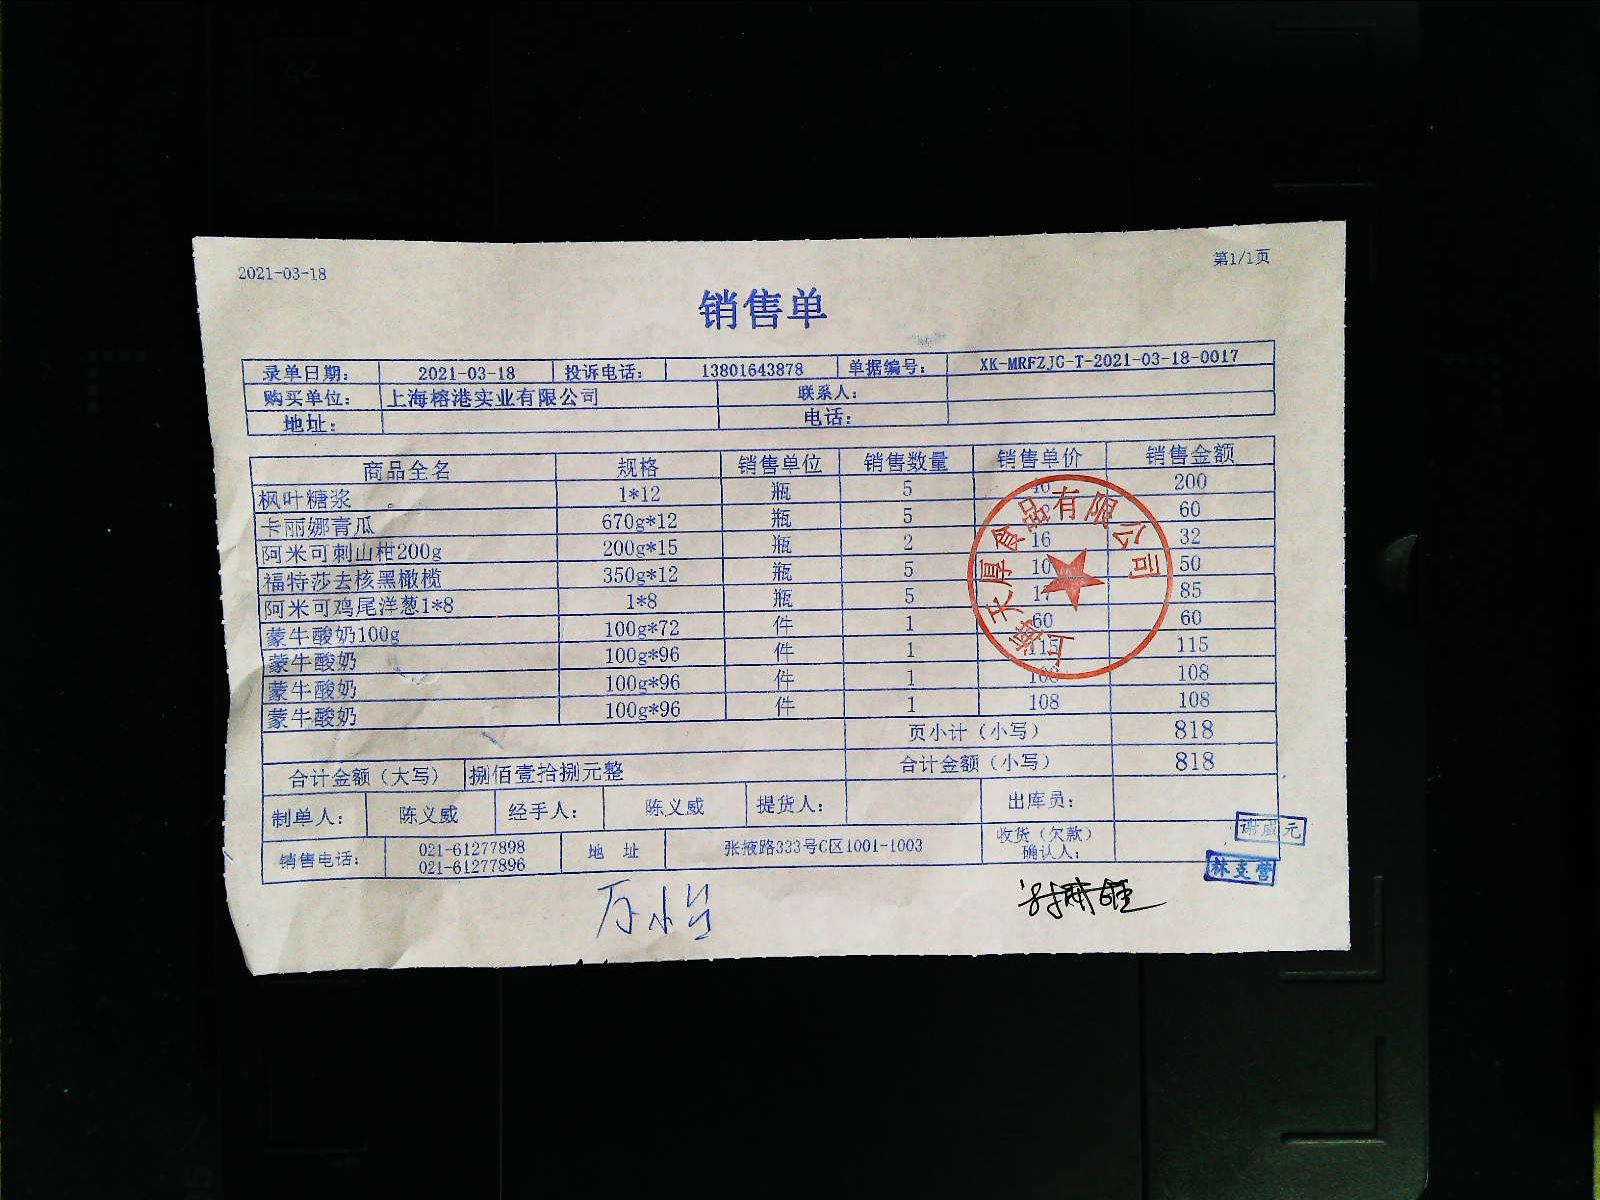 2021-03-18 第1/1页
销售单
录单日期： 2021-03-18 投诉电话： 13801643878 单据编号： XK-MRFZJG-T-2021-03-18-0017
购买单位： 上海榕港实业有限公司 联系人：
地址： 电话：
商品全名 规格 销售单位 销售数量 销售单价 销售金额
枫叶糖浆 1*12 瓶 5 40 200
卡丽娜青瓜 670g*12 瓶 5 60
阿米可刺山柑200g 200g*15 瓶 2 16 32
福特莎去核黑橄榄 350g*12 瓶 5 10 50
阿米可鸡尾洋葱1*8 1*8 瓶 5 17 85
蒙牛酸奶100g 100g*72 件 1 60 60
蒙牛酸奶 100g*96 件 1 115 115
蒙牛酸奶 100g*96 件 1 108 108
蒙牛酸奶 100g*96 件 1 108 108
页小计（小写） 818
合计金额（大写） 捌佰壹拾捌元整 合计金额（小写） 818
制单人： 陈义威 经手人： 陈义威 提货人： 出库员：
销售电话： 021-61277898 地 址 张掖路333号C区1001-1003 收货（欠款）
021-61277896 确认人：
上海天厚食品有限公司